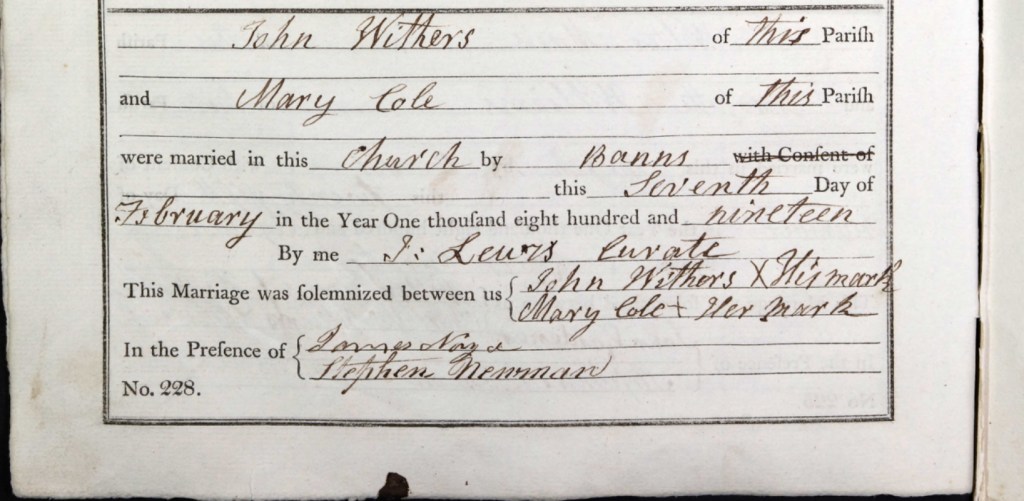 John Withers of this Pariſh
and Mary Cole of this Pariſh
were married in this Church by Banns with Conſent of
this Seventh Day of
February in the Year One thouſand eight hundred and nineteen
By me J: Lewis Curate
This Marriage was ſolemnized between us John Withers X His mark
Mary Cole + Her Mark
In the Preſence of James
Stephen Newman
No. 228.